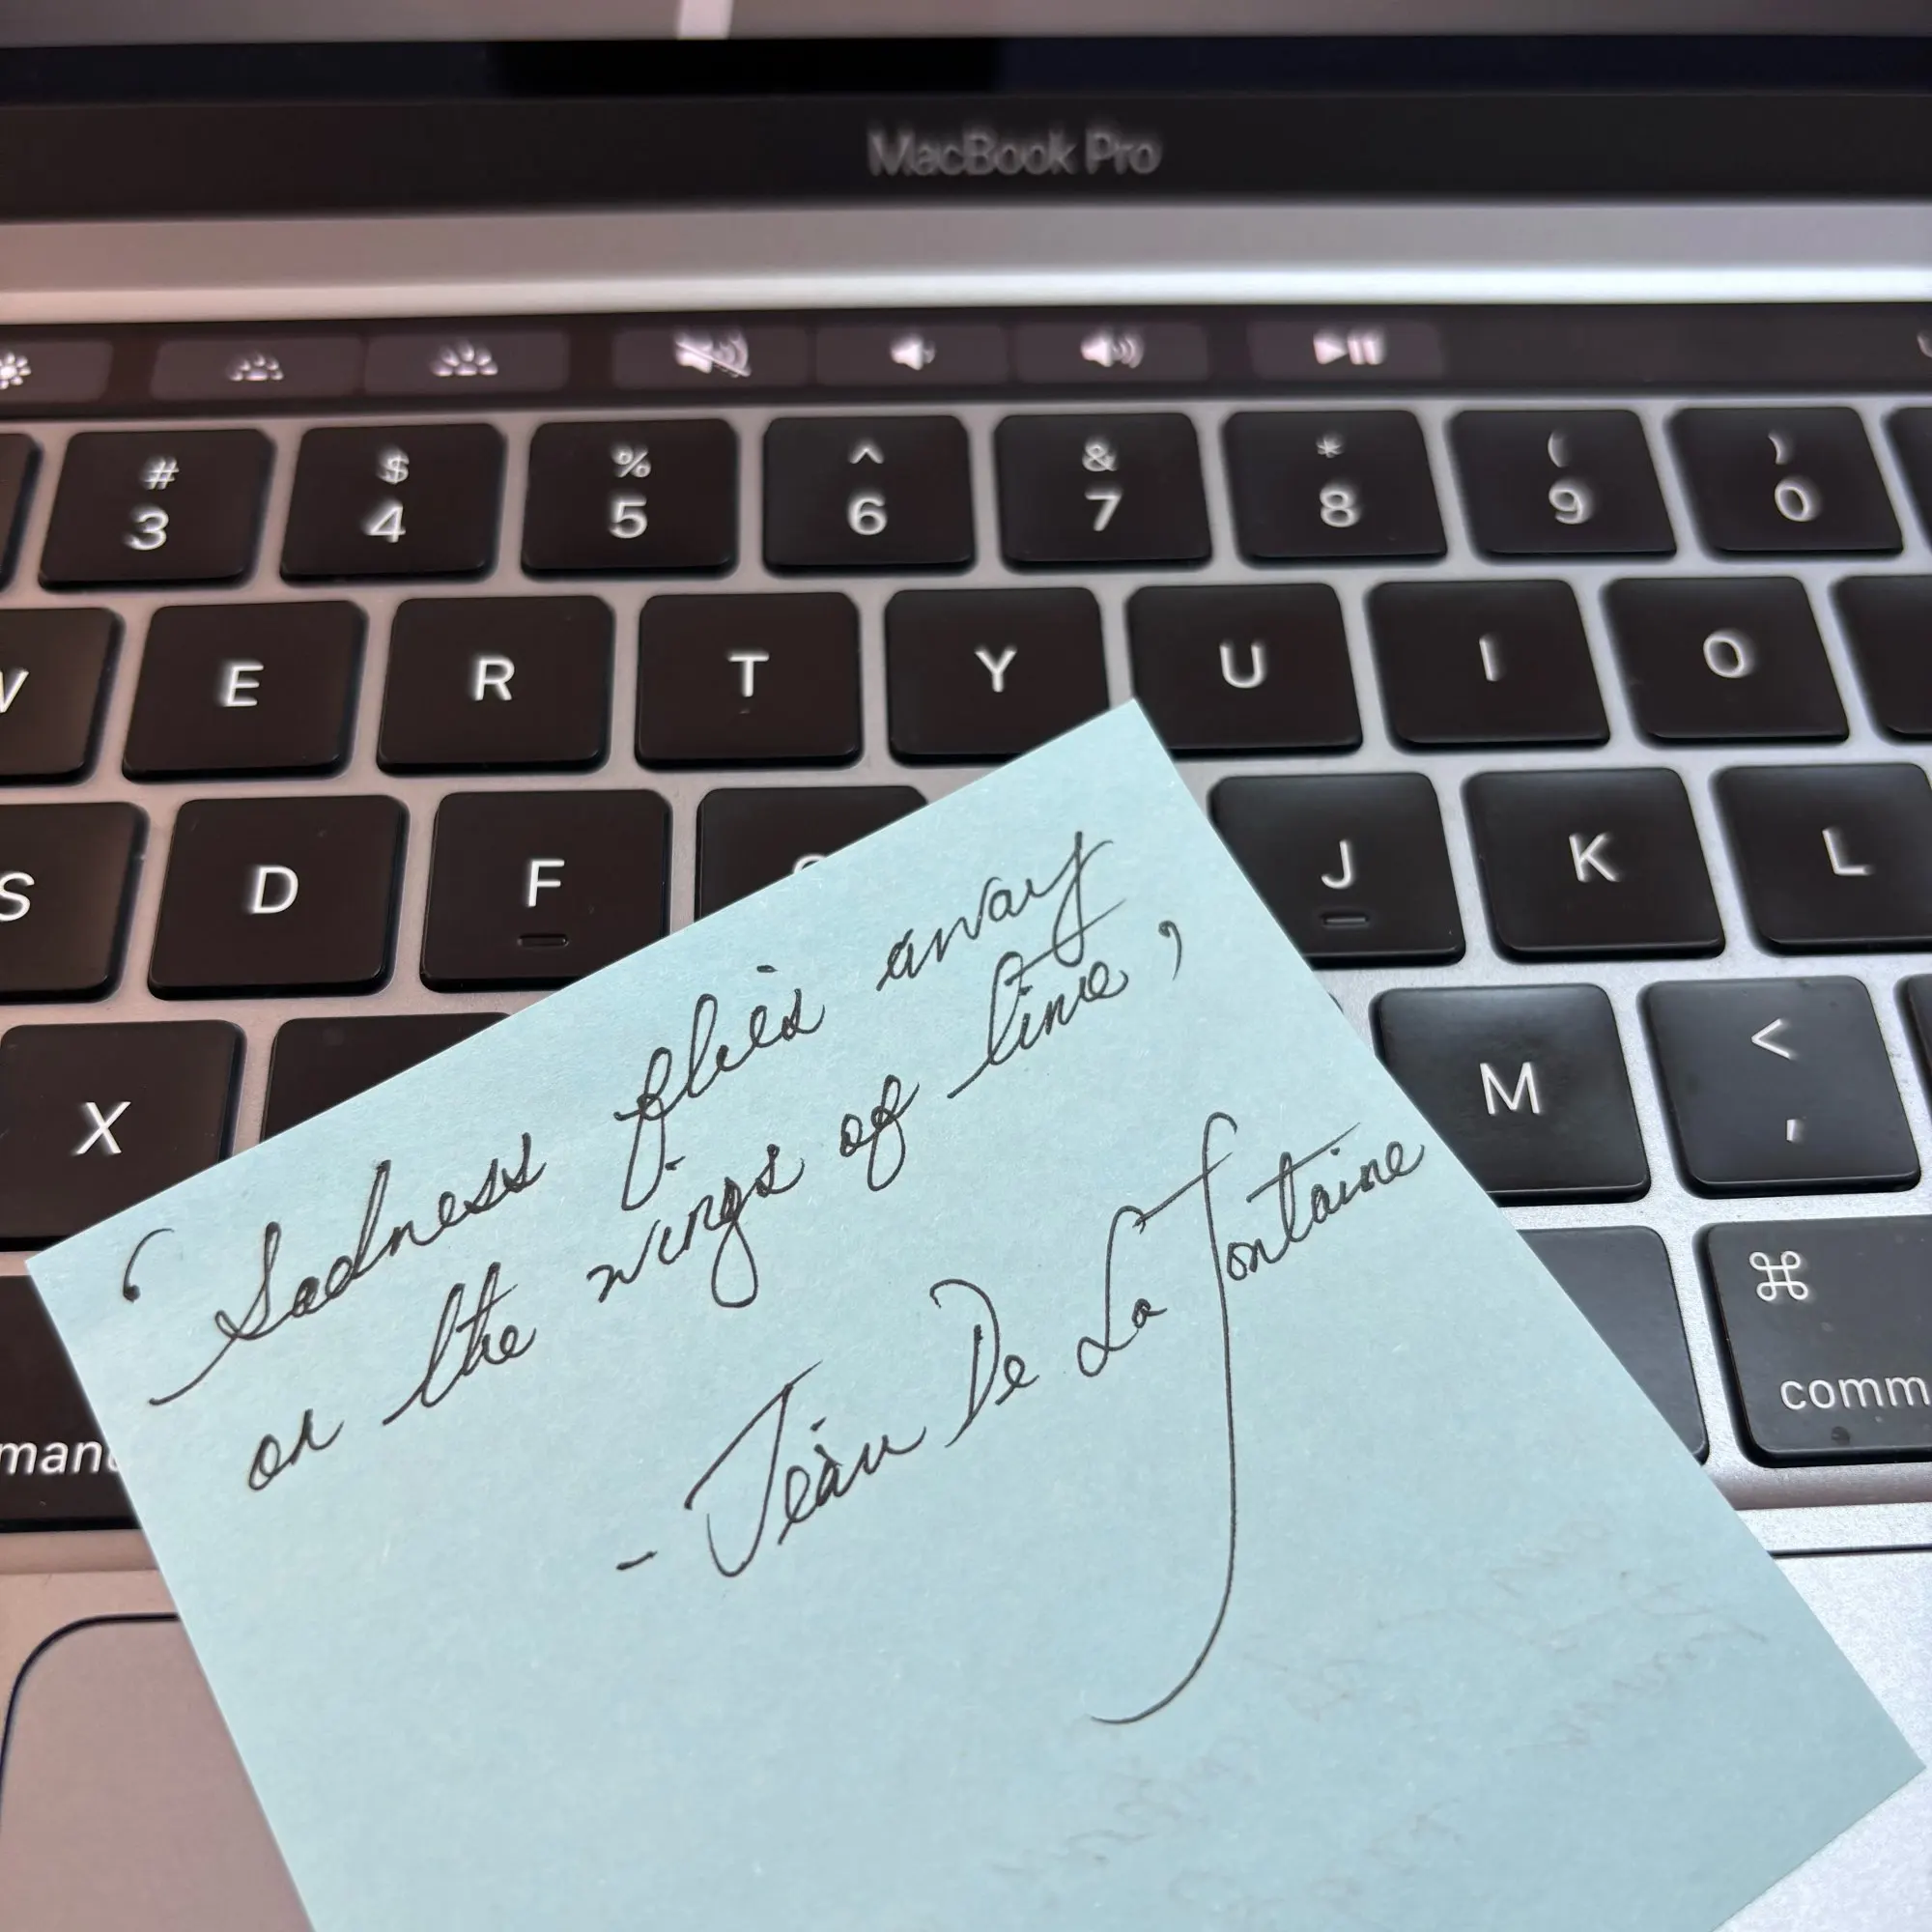 MacBook Pro
# $ % ^ & * ( )
3 4 5 6 7 8 9 0
W E R T Y U I O
S D F J K L
X M <
,
⌘
comm
man
‘Sadness flies away
on the wings of time,’
- Jean De La Fontaine